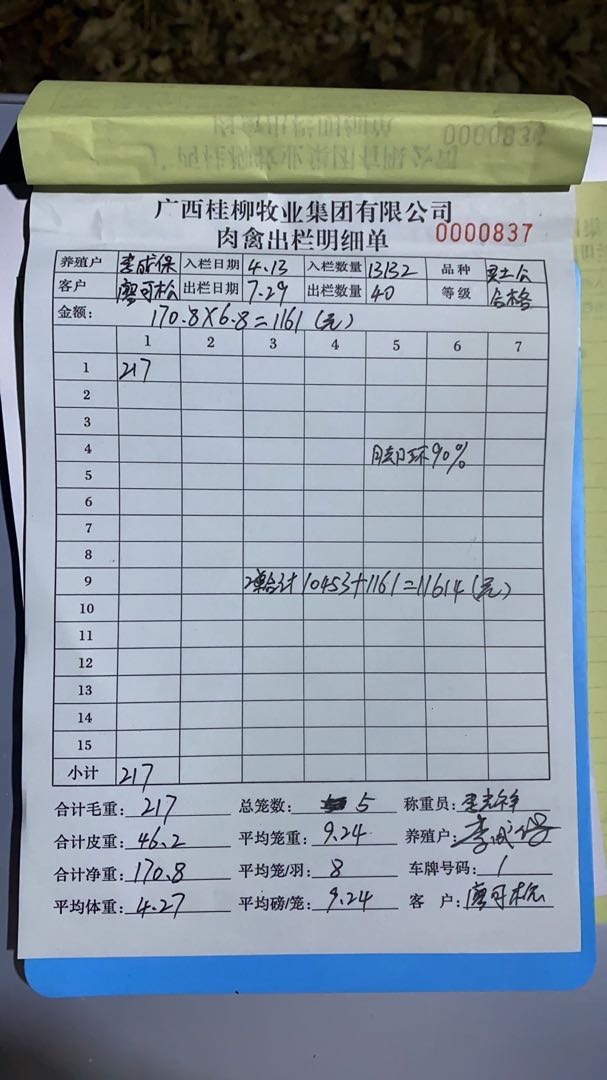 0000834
广西桂柳牧业集团有限公司
肉禽出栏明细单 0000837
养殖户 李成保 入栏日期 4.13 入栏数量 13132 品种
客户 廖可松 出栏日期 7.29 出栏数量 40 等级 合格
金额: 170.8×6.8=1161(元)
1 2 3 4 5 6 7
1 217
2
3
4 脚环90%
5
6
7
8
9 2单合计10453+1161=11614(元)
10
11
12
13
14
15
小计 217
合计毛重: 217 总笼数: 5 称重员:
合计皮重: 46.2 平均笼重: 9.24 养殖户: 李成保
合计净重: 170.8 平均笼/羽: 8 车牌号码: 1
平均体重: 4.27 平均磅/笼: 9.24 客 户: 廖可松